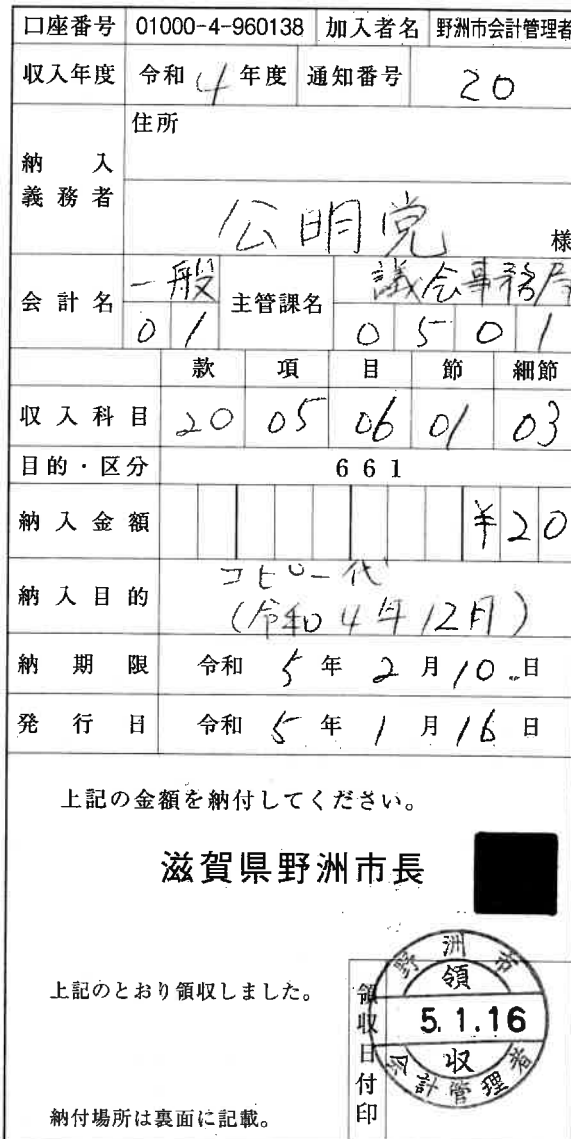 口座番号 01000-4-960138 加入者名 野洲市会計管理者
収入年度 令和 4 年度 通知番号 20
住所
納入義務者
公明党 様
会計名 一般 主管課名 議会事務局
01 0501
款 項 目 節 細節
収入科目 20 05 06 01 03
目的・区分 661
納入金額 ¥20
納入目的 コピー代
(令和4年12月)
納期限 令和 5 年 2 月 10 日
発行日 令和 5 年 1 月 16 日
上記の金額を納付してください。
滋賀県野洲市長
上記のとおり領収しました。
領収日付印
野洲市
領
5.1.16
収
会計管理者
納付場所は裏面に記載。